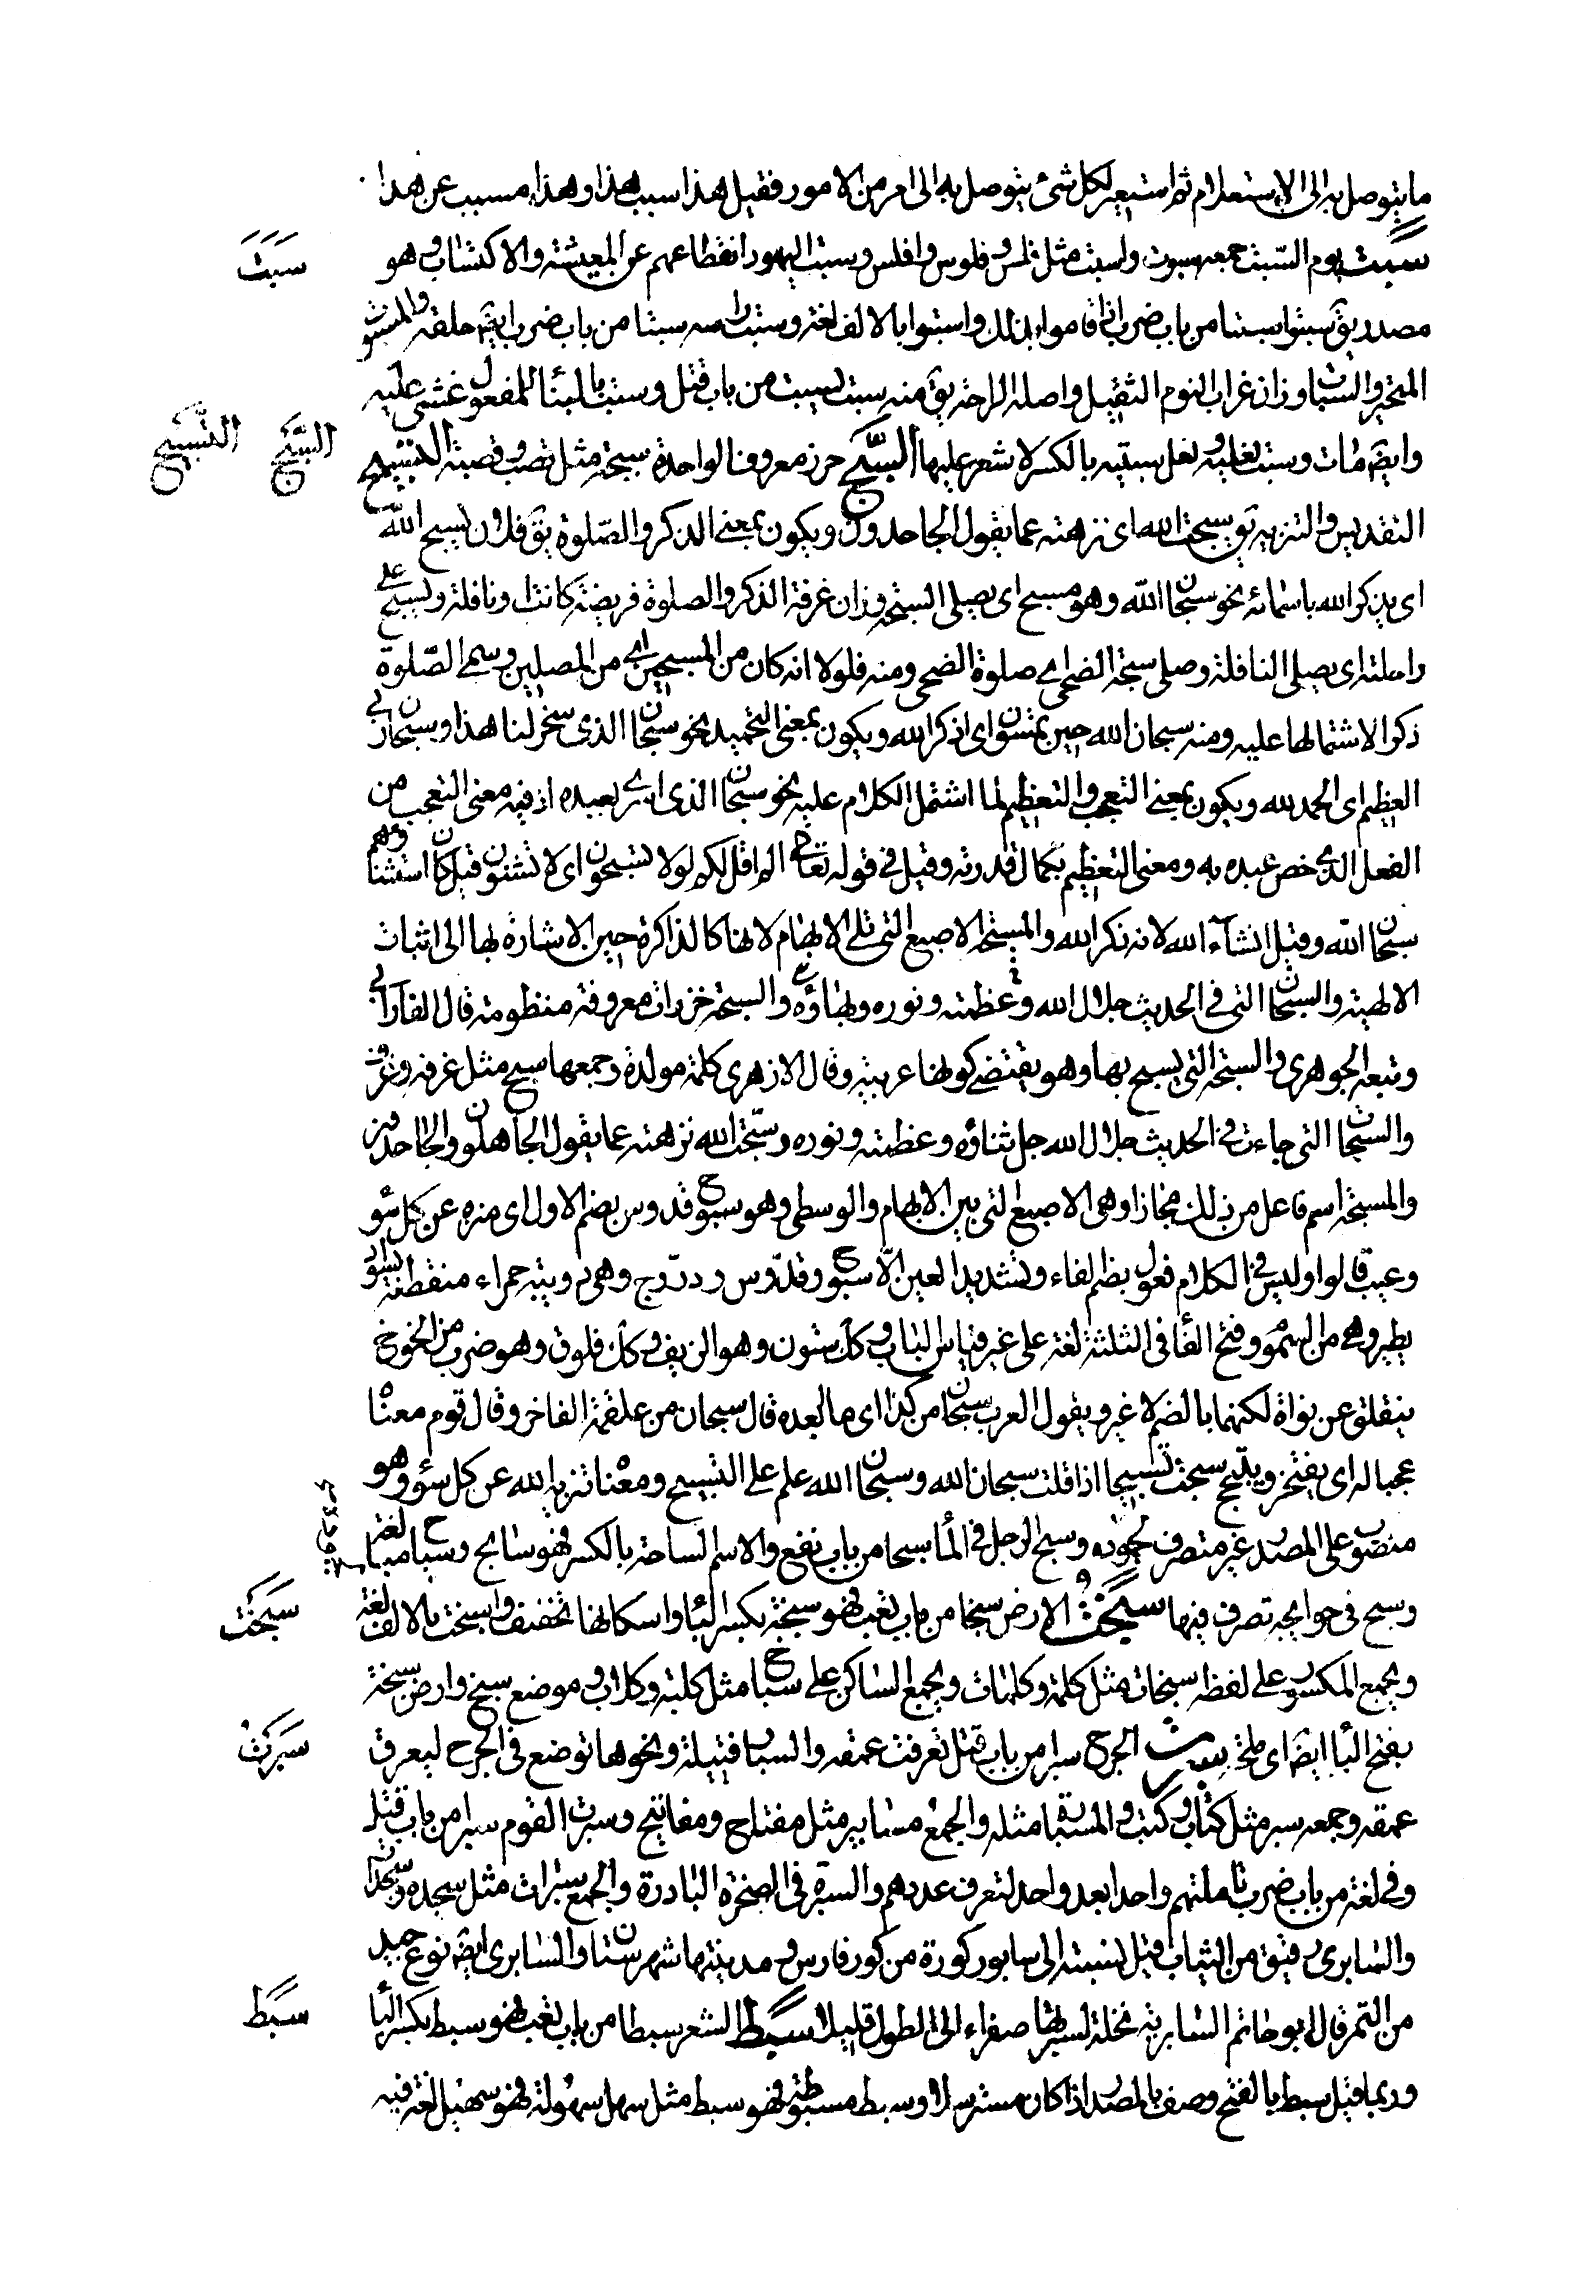 ما يتوصل به الى الاستعلام ثم استعير لكل شئ يتوصل به الى امر من الامور فقيل هذا سبب هذا وهذا مسبب عن هذا
سبت يوم السبت جمعه سبوت واسبت مثل فلس وفلوس وافلس وسبت اليهود انقطاعهم عن المعيشة والاكتساب وهو
سبت
مصدر يق سبتوا سبتا من باب ضرب اذا قاموا بذلك واسبتوا بالالف لغة وسبت راسه سبتا من باب ضرب ايضا حلقه والمسبوت
المتحير والسبات وزان غراب النوم الثقيل واصله الراحة يق منه سبت يسبت من باب قتل وسبت بالبنأ للمفعول غشى عليه
وايضا مات وسبت لغلبة نعل سبتيه بالكسر لا شعر عليها السبج خرز معروف الواحدة سبجة مثل قصب وقصبة التسبيح
السبج
التسبيح
التقديس والتنزيه يق سبحت الله اى نزهته عما يقول الجاحدون ويكون بمعنى الذكر والصلوة يق فلان يسبح الله
اى يذكر الله باسمائه نحو سبحان الله وهو مسبح اى يصلى السبحة وزان غرفة الذكر والصلوة فريضة كانت او نافلة ويسبح على
راحلته اى يصلى النافلة وصلى سبحة الضحى اى صلوة الضحى ومنه فلولا انه كان من المسبحين اى من المصلين وسمى الصلوة
ذكرا لاشتمالها عليه ومنه سبحان الله حين تمسون اى اذكر الله ويكون بمعنى التحميد نحو سبحان الذى سخر لنا هذا وسبحان ربى
العظيم اى الحمد لله ويكون بمعنى التعجب والتعظيم لما اشتمل الكلام عليه نحو سبحان الذى اسرى بعبده اذ فيه معنى التعجب من
الفعل الذى خص عبده به ومعنى التعظيم بكمال قدرته وقيل فى قوله تعالى الم اقل لكم لولا تسبحون اى لا تستثنون قيل كان استثناؤهم
سبحان الله وقيل انشاء الله لانه ذكر الله والمسبحة الاصبع التى تلى الابهام لانها كالذاكرة حين الاشارة بها الى اثبات
الالهية والسبحات التى فى الحديث جلال الله وعظمته ونوره وبهاؤه والسبحة خرزات معروفة منظومة قال الفارابى
وتبعه الجوهرى والسبحة التى يسبح بها وهو يقتضى كونها عربية وقال الازهرى كلمة مولدة وجمعها سبح مثل غرفه وغرف
والسبحات التى جاءت فى الحديث جلال الله جل ثناؤه وعظمته ونوره وسبحت الله نزهته عما يقول الجاهلون والجاحدون
والمسبحة اسم فاعل من ذلك مجازا وهى الاصبع التى بين الابهام والوسطى وهو سبوح قدوس بضم الاول اى منزه عن كل سوء
وعيب قالوا وليس فى الكلام فعول بضم الفاء وتشديد العين الا سبوح وقدوس وذروح وهى دويبة حمراء منقطة بسواد
يطير وهى من السموم وفتح الفأ فى الثلثة لغة على غير قياس الباب وكك ستوق وهو الزيف وكك فلوق وهو ضرب من الخوخ
يتفلق عن نواة لكنهما بالضم لا غير ويقول العرب سبحان من كذا اى ما ابعده قال سبحان من علقمة الفاخر وقال قوم معناه
عجبا له اى يفتخر ويتبجح سبحت تسبيحا اذا قلت سبحان الله وسبحان الله علم على التسبيح ومعناه تنزيه الله عن كل سوء وهو
منصوب على المصدر غير متصرف لجموده وسبح الرجل فى المأ سبحا من باب نفع والاسم السباحة بالكسر فهو سابح وسباح مبالغة
وسبح فى حوايجه تصرف فيها سبخت الارض سبخا من باب تعب فهو سبخة بكسر البأ واسكانها تخفيف واسبخت بالالف لغة
سبخت
ويجمع المكسور على لفظه سبخات مثل كلمة وكلمات ويجمع الساكن على سباخ مثل كلبة وكلاب وموضع سبخ وارض سبخة
بفتح البأ ايضا اى ملحة سبرت الجرح سبرا من باب قتل تعرفت عمقه والسبار فتيلة ونحوها توضع فى الجرح ليعرف
سبرت
عمقه وجمعه سبر مثل كتاب وكتب والمسبار مثله والجمع مسابير مثل مفتاح ومفاتيح وسبرت القوم سبرا من باب قتل
وفى لغة من باب ضرب تاملتهم واحدا بعد واحد لتعرف عددهم والسبرة فى الضحوة الباردة والجمع سبرات مثل سجده وسجدات
والسابرى رقيق من الثياب قيل نسبته الى سابور كورة من كور فارس و مدينتها شهرستان والسابرى ايضا نوع جيد
من التمر قال ابو حاتم السابرية نخلة بسرتها صفراء الى الطول قليلا سبط الشعر سبطا من باب تعب فهو سبط بكسر البأ
سبط
وربما قيل سبط بالفتح وصف بالمصدر اذا كان مسترسلا وسبط سبوطة فهو سبط مثل سهل سهولة فهو سهل لغة فيه